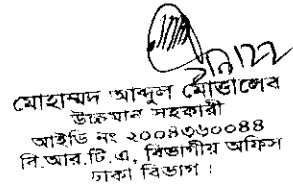 মোহাম্মদ আব্দুল মোত্তালেব
উচ্চমান সহকারী
আইডি নং ২০০৪৩৬০০৪৪
বি.আর.টি.এ, বিভাগীয় অফিস
ঢাকা বিভাগ।